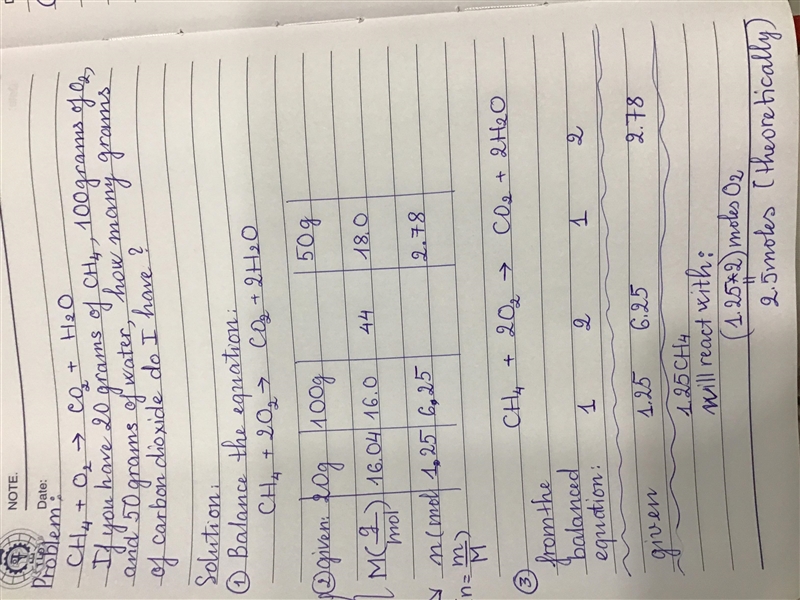 NOTE.
Date:
Problem:
CH₄ + O₂ → CO₂ + H₂O
If you have 20 grams of CH₄, 100 grams of O₂,
and 50 grams of water, how many grams
of carbon dioxide do I have?
Solution:
① Balance the equation:
CH₄ + 2O₂ → CO₂ + 2H₂O
② given 20g 100g 50g
M(g/mol) 16.04 16.0 44 18.0
n(mol 1,25 6,25 2.78
n = m/M
③ CH₄ + 2O₂ → CO₂ + 2H₂O
from the
balanced
equation: 1 2 1 2
given 1.25 6.25 2.78
1.25CH₄
will react with:
(1.25*2) moles O₂
=
2.5 moles (theoretically)